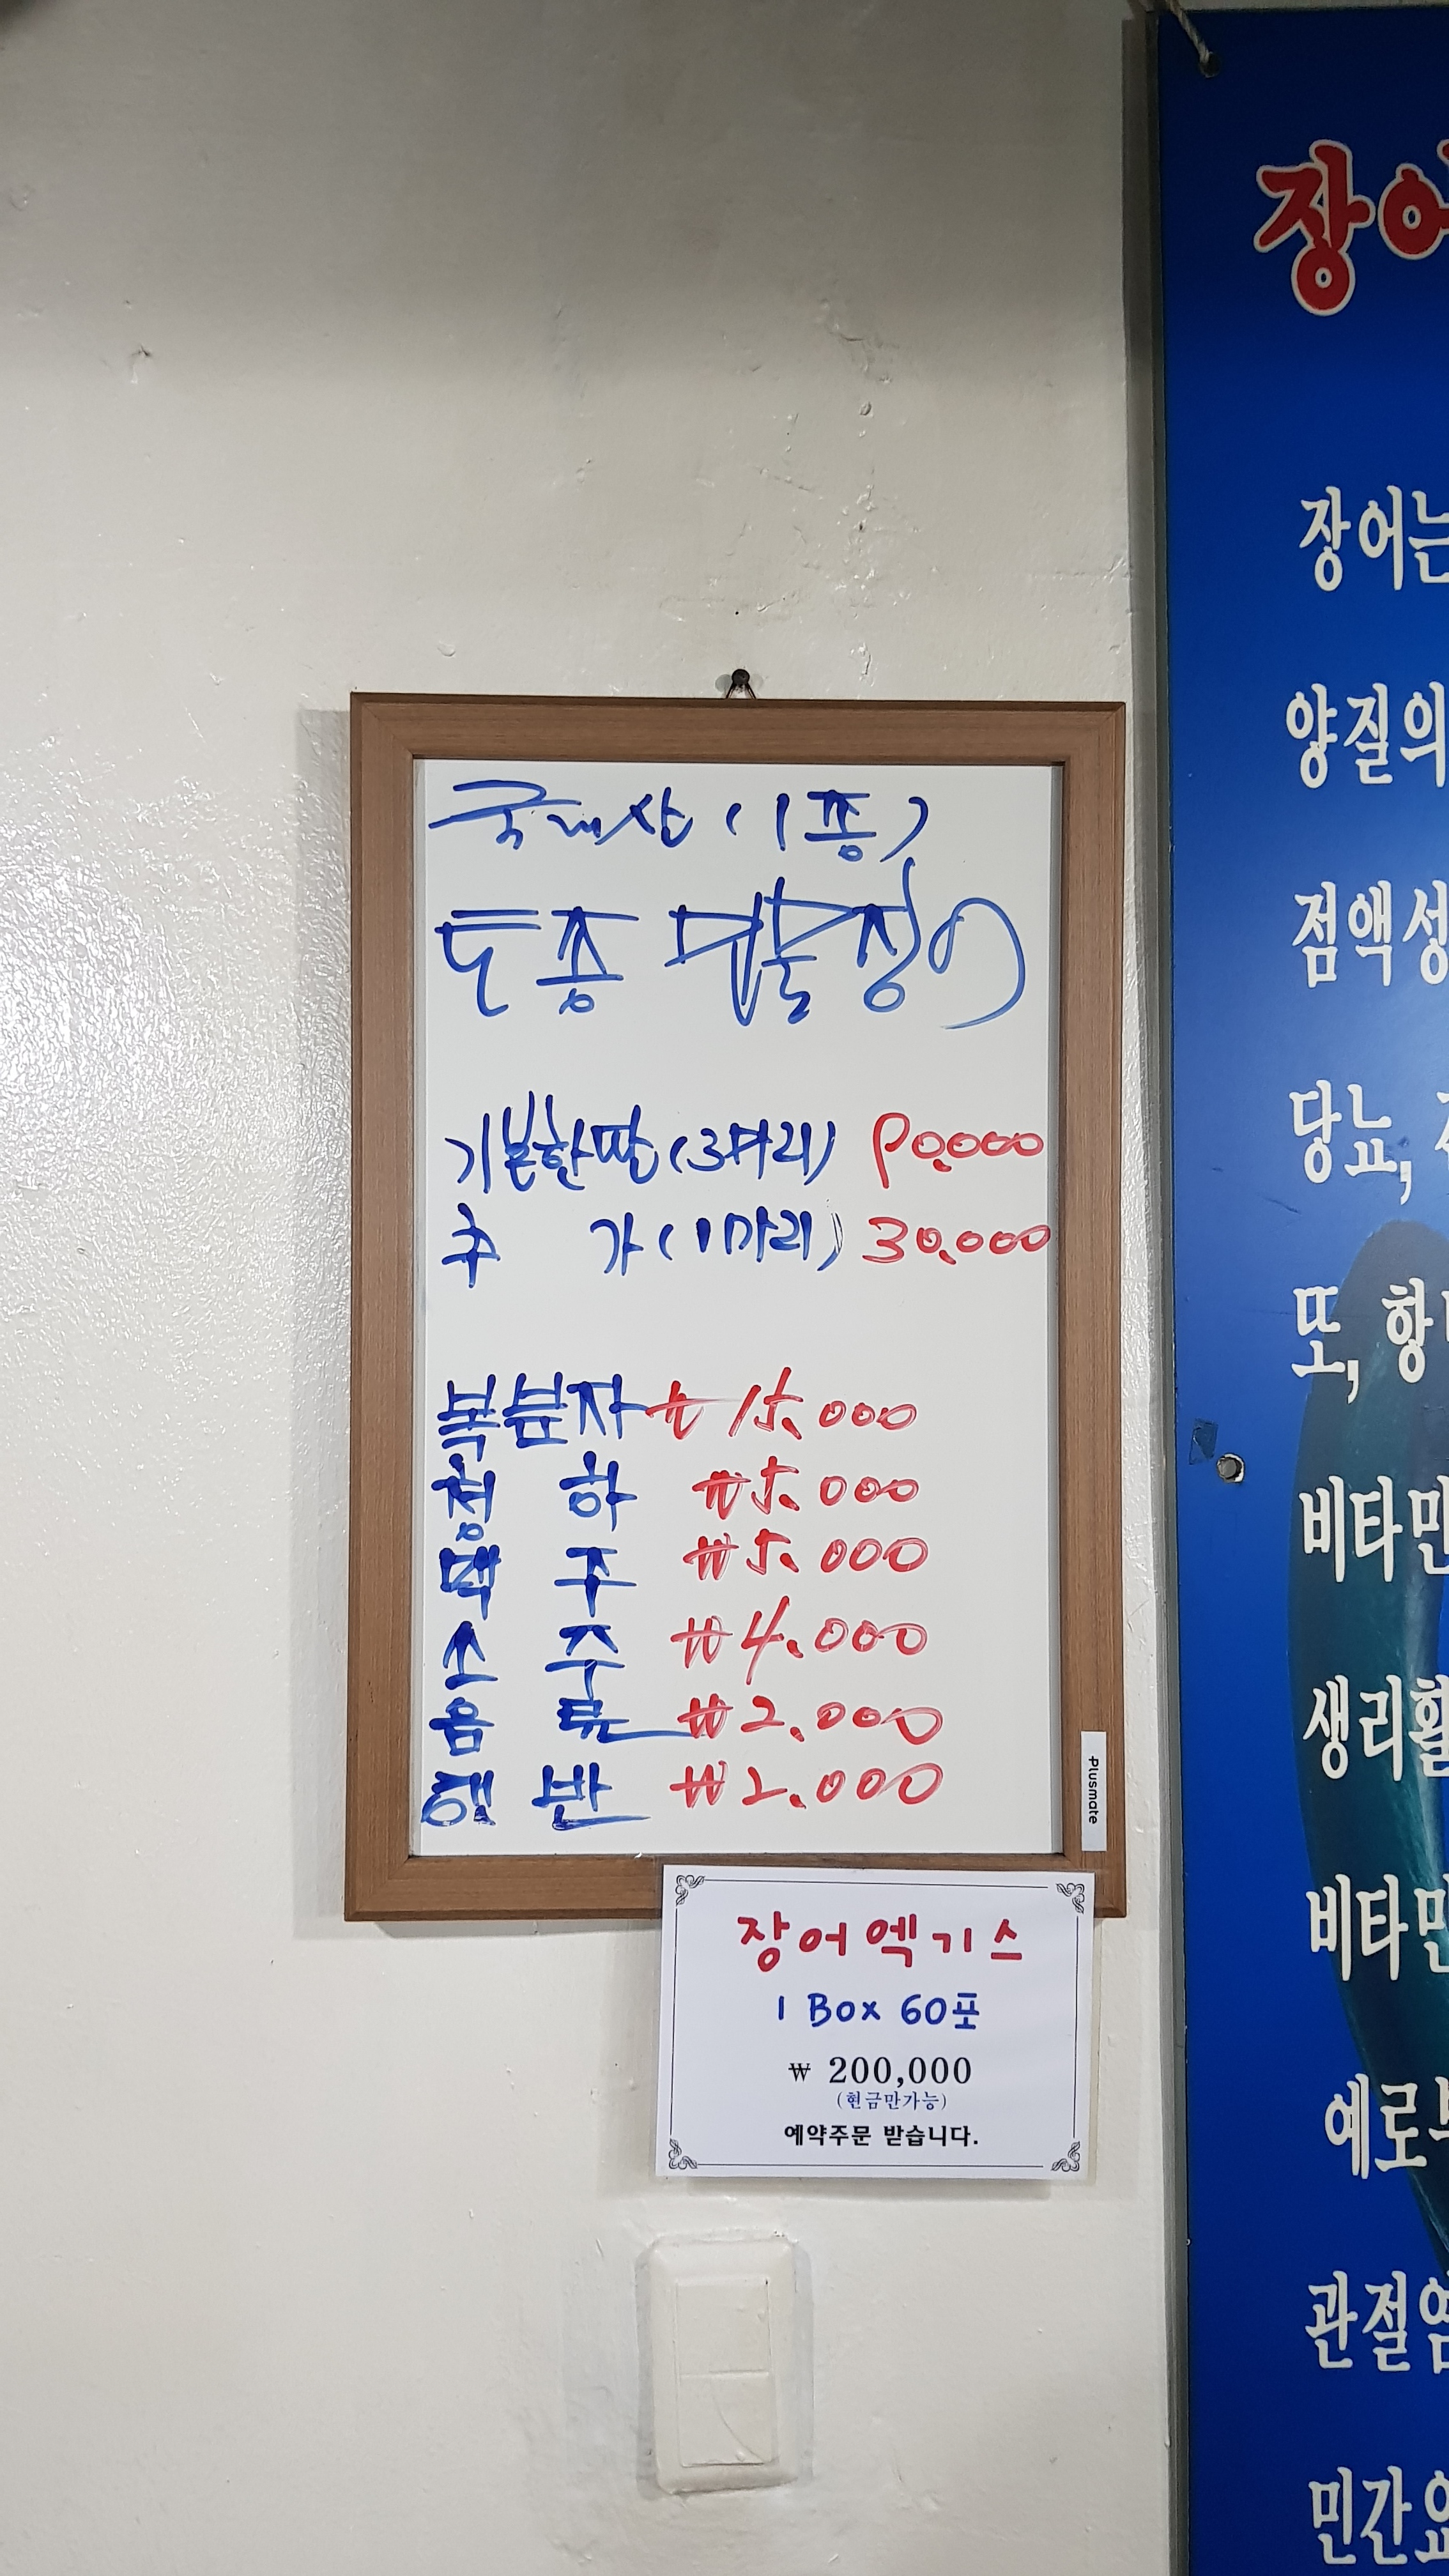 국내산 (1종)
토종 민물장어
기본한판 (3마리) 90.000
추 가 (1마리) 30.000
복분자 ₩15.000
청 하 ₩5.000
맥 주 ₩5.000
소 주 ₩4.000
음 류 ₩2.000
햇 반 ₩2.000
Plusmate
장어엑기스
1 Box 60포
₩ 200,000
(현금만가능)
예약주문 받습니다.
장어
장어는
양질의
점액성
당뇨,
또, 항
비타민
생리활
비타민
예로부
관절염
민간요